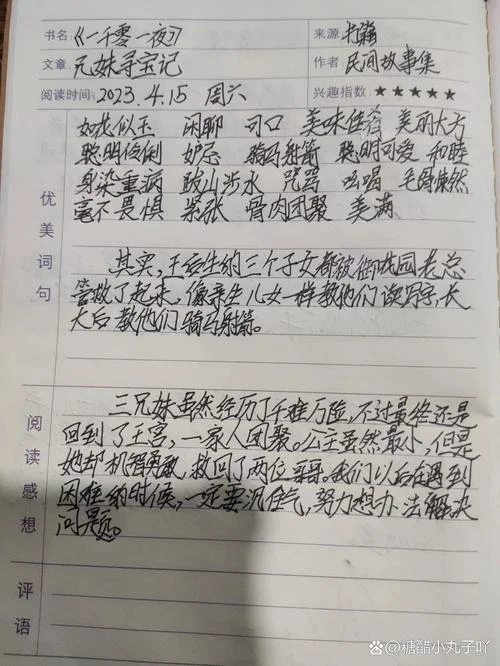 书名 《一千零一夜》 来源 书籍
文章 兄妹寻宝记 作者 民间故事集
阅读时间 2023.4.15 周六 兴趣指数:★★★★★
优美词句
如花似玉 闲聊 可口 美味佳肴 美丽大方
聪明伶俐 妒忌 骑马射箭 聪明可爱 和睦
身染重病 跋山涉水 咒骂 吆喝 毛骨悚然
毫不畏惧 紧张 骨肉团聚 美满
其实,王后生的三个子女都被御花园老总
管救了起来,像亲生儿女一样教他们读写字,长
大后教他们骑马射箭。
阅读感想
三兄妹虽然经历了千难万险,不过最终还是
回到了王宫,一家人团聚。公主虽然最小,但是
她却机智勇敢,救回了两位哥哥。我们以后在遇到
困难的时候,一定要沉住气,努力想办法解决
问题。
评语
@糖醋小丸子吖